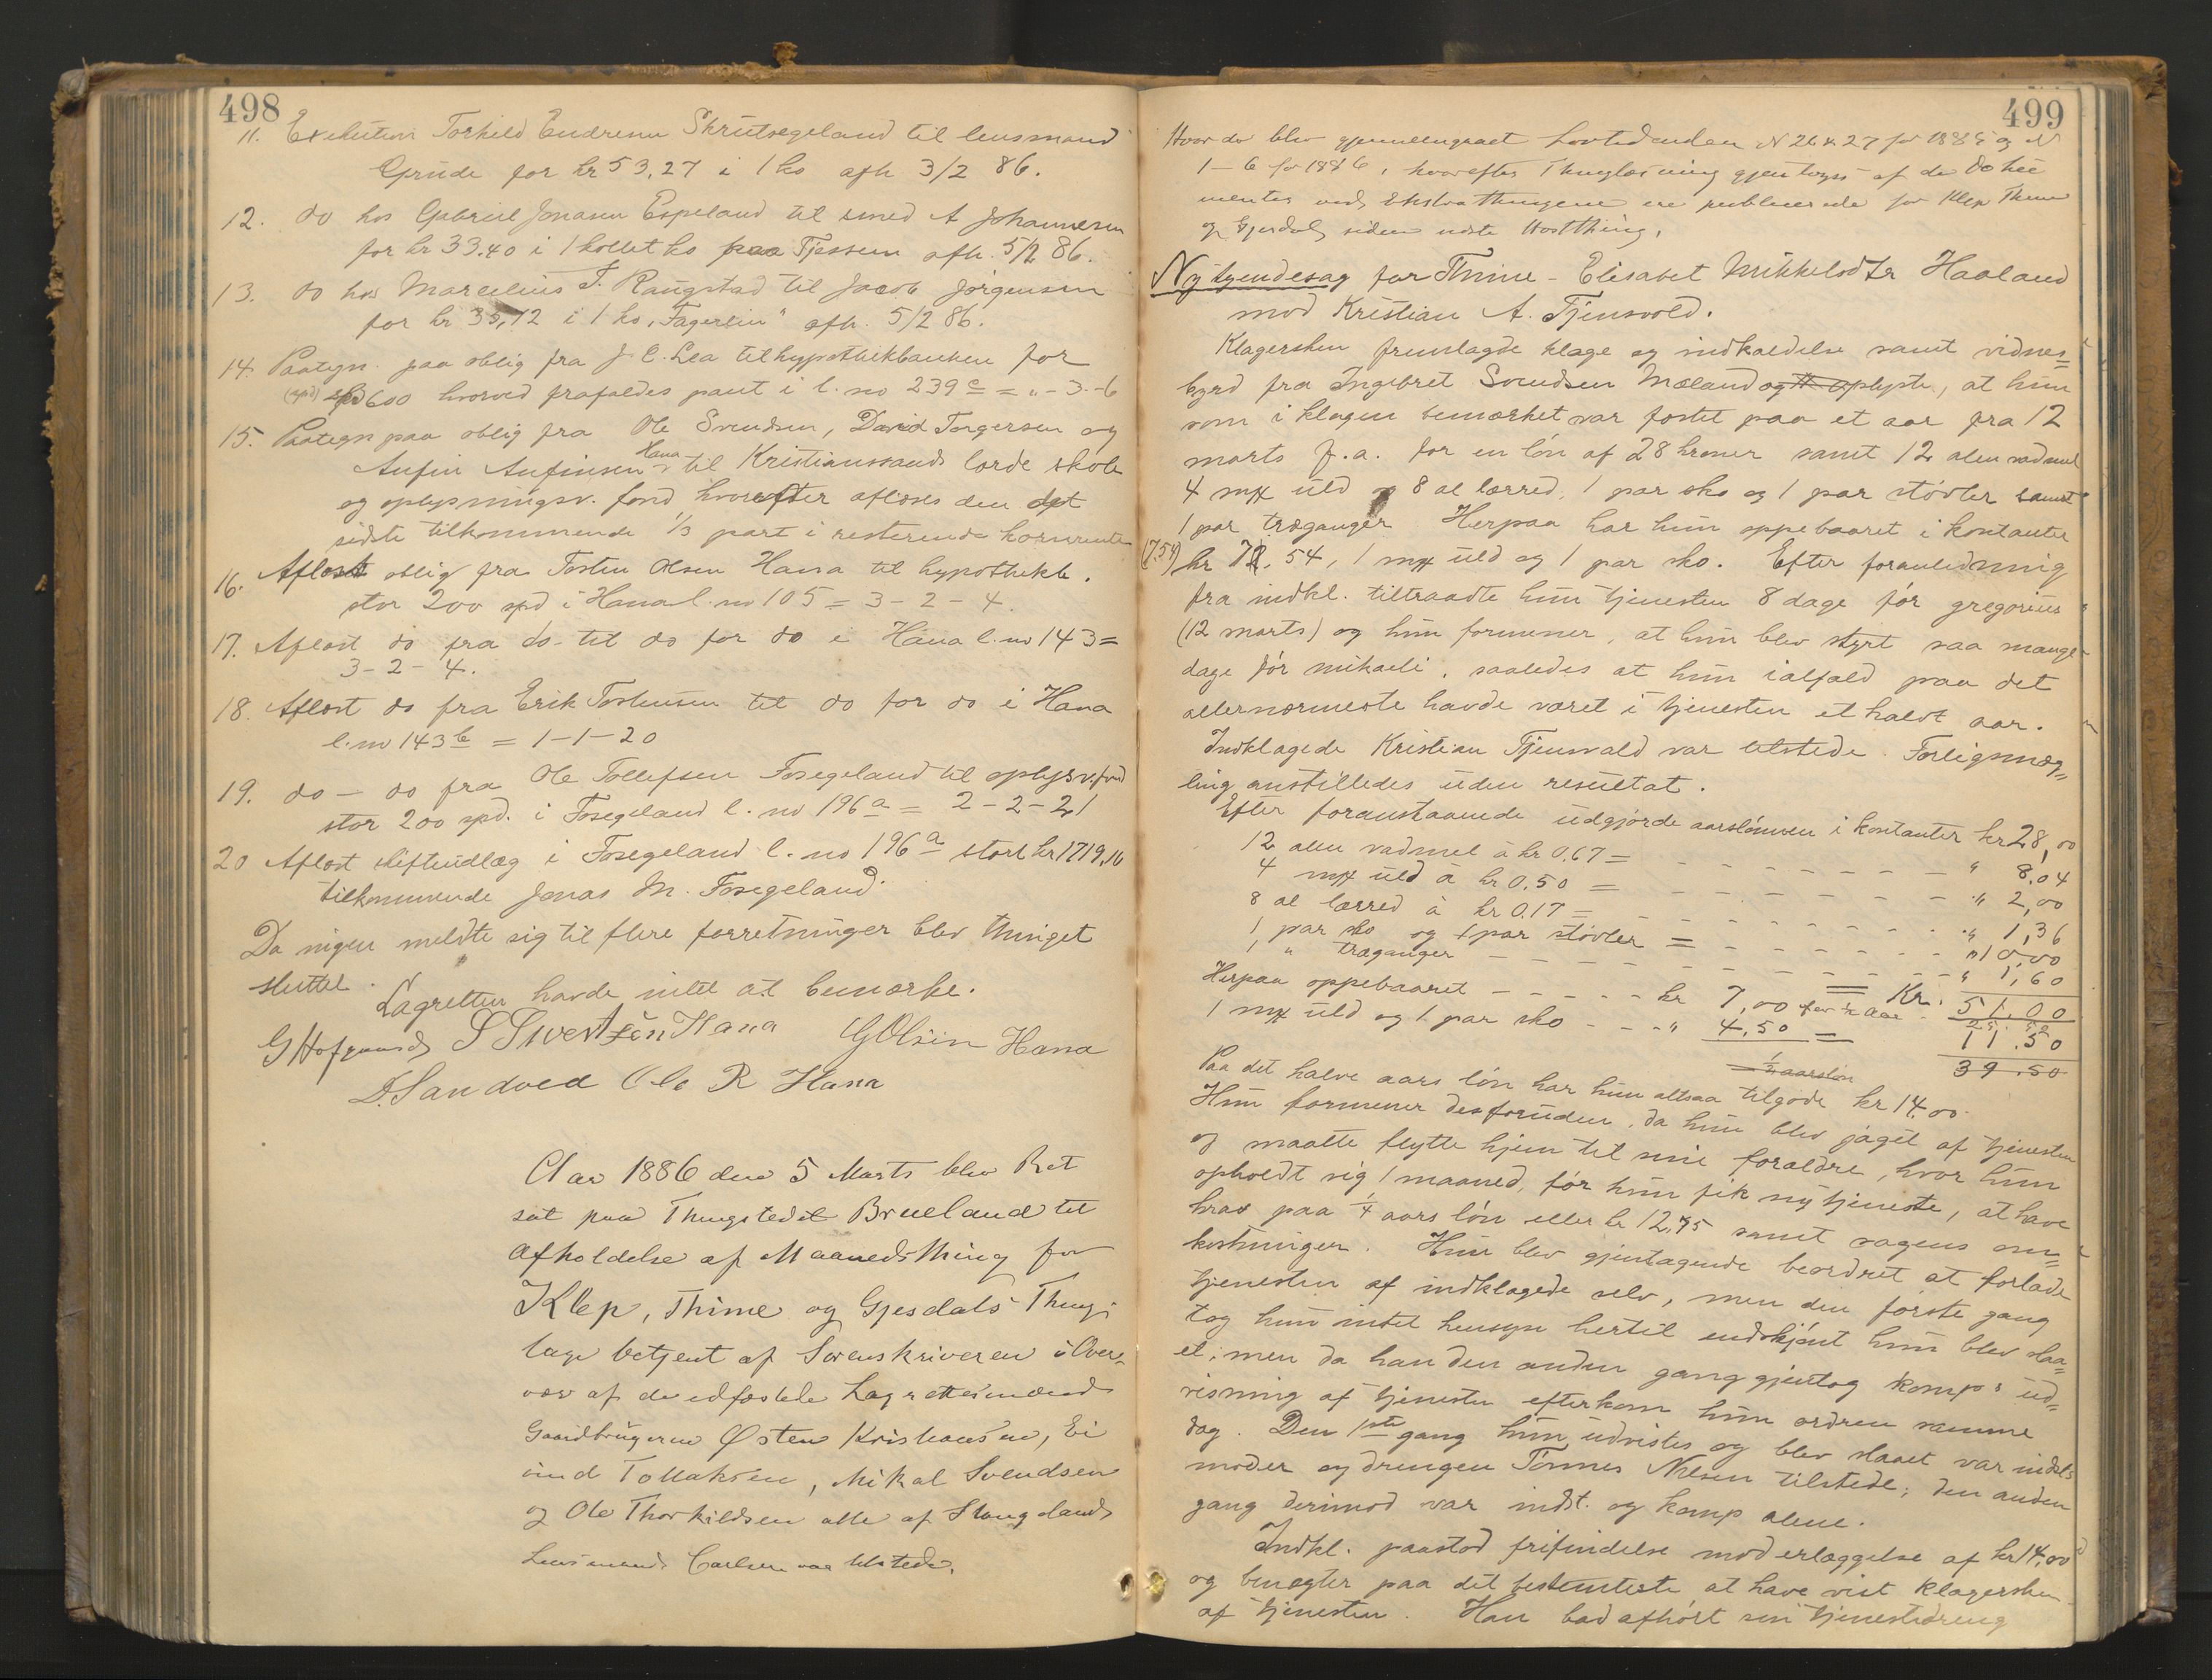 498
11. Exekution Torkild Endresen Skrutsegeland til lensmand
Grude for kr 53,27 i 1 ko afh 3/2 86.
12. do hos Gabriel Jonasen Espeland til smed A Johannesen
for kr 33.40 i 1 kollet ko paa Tjessem afh. 5/2 86.
13. do hos Marcelius T. Raugstad til Jacob Jørgensen
for kr 35,12 i 1 ko "Fagerlin" afh. 5/2 86.
14. Paategn. paa oblig fra J. E. Lea til hypothekbanken for
(spd) spd 600 hvorved frafaldes pant i l. no 239 c = " - 3 - 6
15. Paategn paa oblig fra Ole Svendsen, David Torgersen og
Aufin Aufinsen Hana til Kristianssands lærde skole
og oplysningsv. fond, hvorefter afløses den det
sidste tilkommende 1/3 part i resterende kornrente
16. Afløst oblig fra Tosten Olsen Hana til hypothekb.
stor 200 spd i Hana l. no 105 = 3 - 2 - 4.
17. Afløst do fra do til do for do i Hana l. no 143 =
3 - 2 - 4.
18. Afløst do fra Erik Tostensen til do for do i Hana
l. no 143 b = 1 - 1 - 20
19. do — do fra Ole Tollefsen Fosegeland til oplysv.fond
stor 200 spd. i Fosegeland l. no 196 a = 2 - 2 - 21
20 Afløst skifteudlæg i Fosegeland l. no 196 a stort kr 1719,16
tilkommende Jonas M. Fosegeland.
Da ingen meldte sig til flere forretninger blev thinget
sluttet.
Lagretten havde intet at bemærke.
G Hofgaard S Sivertsen Hana G Olsen Hana
D. Sandved Ole R Hana
Aar 1886 den 5 Marts blev Ret
sat paa Thingstedet Brueland til
Afholdelse af Maanedsthing for
Klep, Thime og Gjesdals Thing-
lage betjent af Sorenskriveren i Over-
vær af de edfæstede Lagrettesmænd
Gaardbrugerne Østen Kristiansen, Ei
vind Tollaksen, Mikal Svendsen
og Ole Thorkildsen alle af Slangeland
Lensmand Carlsen var tilstede.
499
Hvor da blev gjennemgaaet Lovtidenden N 26 & 27 for 1885 og N
1 - 6 for 1886, hvorefter Thinglæsning gjentoges af de Doku
menter ved Ekstrathingene ere publicerede for Klep Thime
og Gjesdal siden sidste Høstthing.
Ny tyendesag for Thime - Elisabet Mikkelsdtr Haaland
mod Kristian A. Tjensvold.
Klagersken fremlagde klage og indkaldelse samt vidnes=
byrd fra Ingebret Svendsen Mæland og oplyste, at hun
som i klagen bemærket var fæstet paa et aar fra 12
marts f. a. for en løn af 28 kroner samt 12 alen vadmel
4 mk uld og 8 al lærred, 1 par sko og 1 par støvler samt
1 par træganger Herpaa har hun oppebaaret i kontanter
(7.54) kr 7. 54, 1 mk uld og 1 par sko. Efter foranledning
fra indkl. tiltraadte hun tjenesten 8 dage før gregorius
(12 marts) og hun formener, at hun blev styrt saa mange
dage før mikaeli, saaledes at hun ialfald paa det
allernærmeste havde været i tjenesten et halvt aar.
Indklagede Kristian Tjensvald var tilstede. Forligsmæg=
ling anstilledes uden resultat.
Efter foranstaaende udgjorde aarslønnen i kontanter kr 28,00
12 alen vadmel à kr 0.67 = - - - - - - " 8.04
4 mk uld à kr 0.50 = - - - - - - " 2,00
8 al lærred à kr 0.17 = - - - - - - " 1,36
1 par sko og 1 par støvler = - - - - - - " 10,00
1 " træganger - - - - - - " 1,60
Kr. 51.00
Herpaa oppebaaret - - - - - kr 7,00 for ½ aar
1 mk uld og 1 par sko - - - " 4.50 = 11.50
= ½ aarsløn 39.50
Paa det halve aars løn har hun altsaa tilgode kr 14.00.
Hun formener desforuden, da hun blev jaget af tjenesten
og maatte flytte hjem til sine forældre, hvor hun
opholdt sig 1 maaned, før hun fik ny tjeneste, at have
krav paa ¼ aars løn eller kr 12,75 samt sagens om=
kostninger. Hun blev gjentagende beordret at forlade
tjenesten af indklagede selv, men den første gang
tog hun intet hensyn hertil endskjønt hun blev slaa=
et; men da han den anden gang gjentog komp. ud=
visning af tjenesten efterkom hun ordren samme
dag. Den 1ste gang hun udvistes og blev slaaet var indkls
moder og drengen Tønnes Nilsen tilstede; den anden
gang derimod var indk. og komp alene.
Indkl. paastod frifindelse mod erlæggelse af kr 14,00
og benægter paa det bestemteste at have vist klagersken
af tjenesten. Han bad afhørt sin tjenestedreng